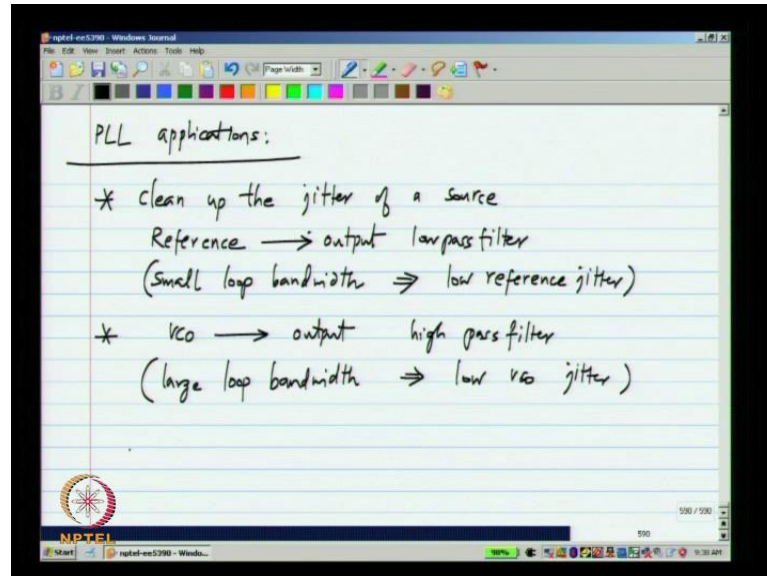 nptel-ee5390 - Windows Journal
File Edit View Insert Actions Tools Help
Page Width
B I
PLL applications:
* Clean up the jitter of a source
Reference → output low pass filter
(Small loop bandwidth ⇒ low reference jitter)
* VCO → output high pass filter
(large loop bandwidth ⇒ low VCO jitter)
590 / 590
590
NPTEL
Start nptel-ee5390 - Windo...
98%
9:38 AM